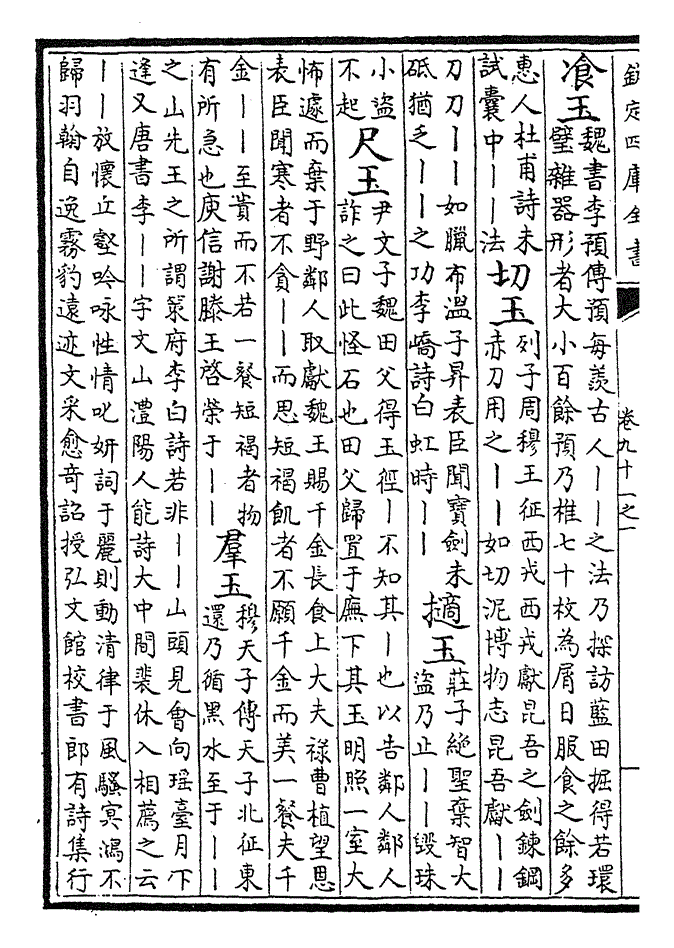 欽定四庫全書
卷九十一之一
飡玉
魏書李預傳預每羨古人丨丨之法乃採訪藍田掘得若環
璧雜器形者大小百餘預乃椎七十枚為屑日服食之餘多
惠人杜甫詩未
試囊中丨丨法
切玉
列子周穆王征西戎西戎獻昆吾之劍鍊鋼
赤刀用之丨丨如切泥博物志昆吾獻丨丨
刀刀丨丨如臘布溫子昇表臣聞寶劍未
砥猶乏丨丨之功李嶠詩白虹時丨丨
擿玉
莊子絶聖棄智大
盜乃止丨丨毀珠
小盜
不起
尺玉
尹文子魏田父得玉徑丨不知其丨也以告鄰人鄰人
詐之曰此怪石也田父歸置于廡下其玉明照一室大
怖遽而棄于野鄰人取獻魏王賜千金長食上大夫祿曹植望恩
表臣聞寒者不貪丨丨而思短褐飢者不願千金而美一餐夫千
金丨丨至貴而不若一餐短褐者物
有所急也庾信謝滕王啓榮于丨丨
羣玉
穆天子傳天子北征東
還乃循黑水至于丨丨
之山先王之所謂䇿府李白詩若非丨丨山頭見會向瑶臺月下
逢又唐書李丨丨字文山澧陽人能詩大中間裴休入相薦之云
丨丨放懷丘壑吟咏性情叱妍詞于麗則動清律于風騷冥鴻不
歸羽翰自逸霧豹遠迹文采愈奇詔授弘文館校書郎有詩集行